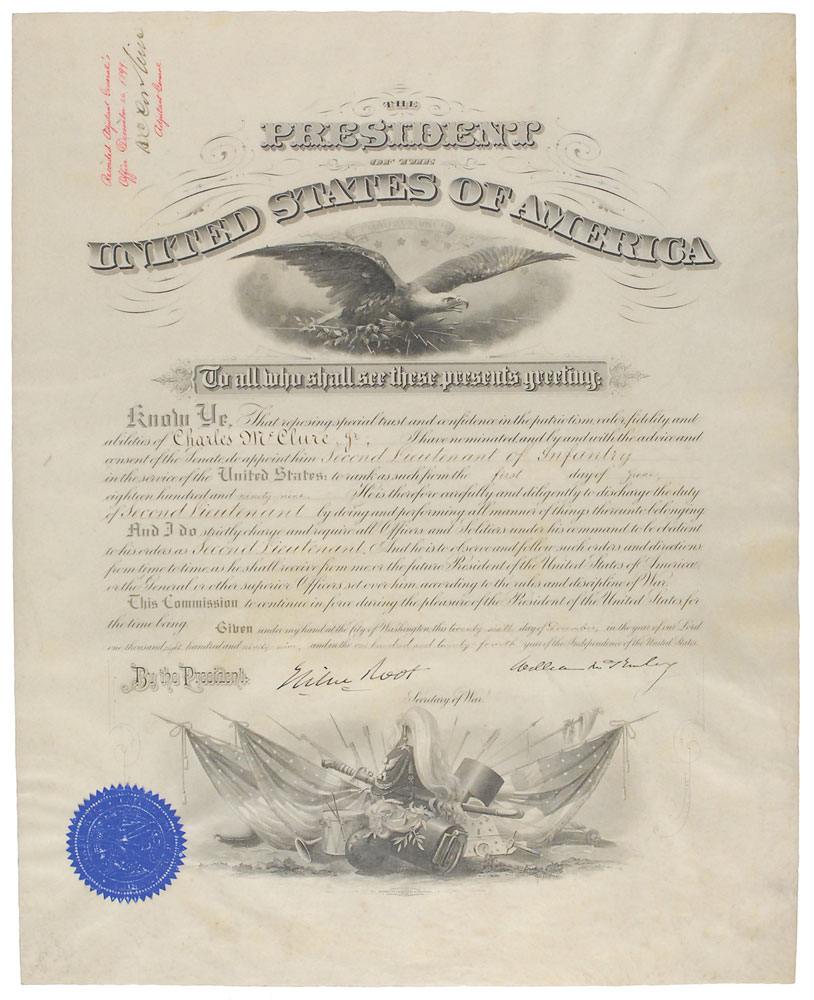 Recorded Adjutant General's
Office December 26 1899
Adjutant General
THE
PRESIDENT
OF THE
UNITED STATES OF AMERICA
To all who shall see these presents greeting:
Know Ye, That reposing special trust and confidence in the patriotism, valor, fidelity and
abilities of Charles McClure, Jr., I have nominated and by and with the advice and
consent of the Senate do appoint him Second Lieutenant of Infantry
in the service of the United States: to rank as such from the first day of June,
eighteen hundred and ninety nine. He is therefore carefully and diligently to discharge the duty
of Second Lieutenant by doing and performing all manner of things thereunto belonging.
And I do strictly charge and require all Officers and Soldiers under his command to be obedient
to his orders as Second Lieutenant. And he is to observe and follow such orders and directions
from time to time, as he shall receive from me or the future President of the United States of America,
or the General or other superior Officers set over him, according to the rules and discipline of War.
This Commission to continue in force during the pleasure of the President of the United States for
the time being. Given under my hand at the City of Washington, this twenty sixth day of December, in the year of our Lord
one thousand eight hundred and ninety nine, and in the one hundred and twenty fourth year of the Independence of the United States.
By the President:
Elihu Root
William McKinley
Secretary of War.